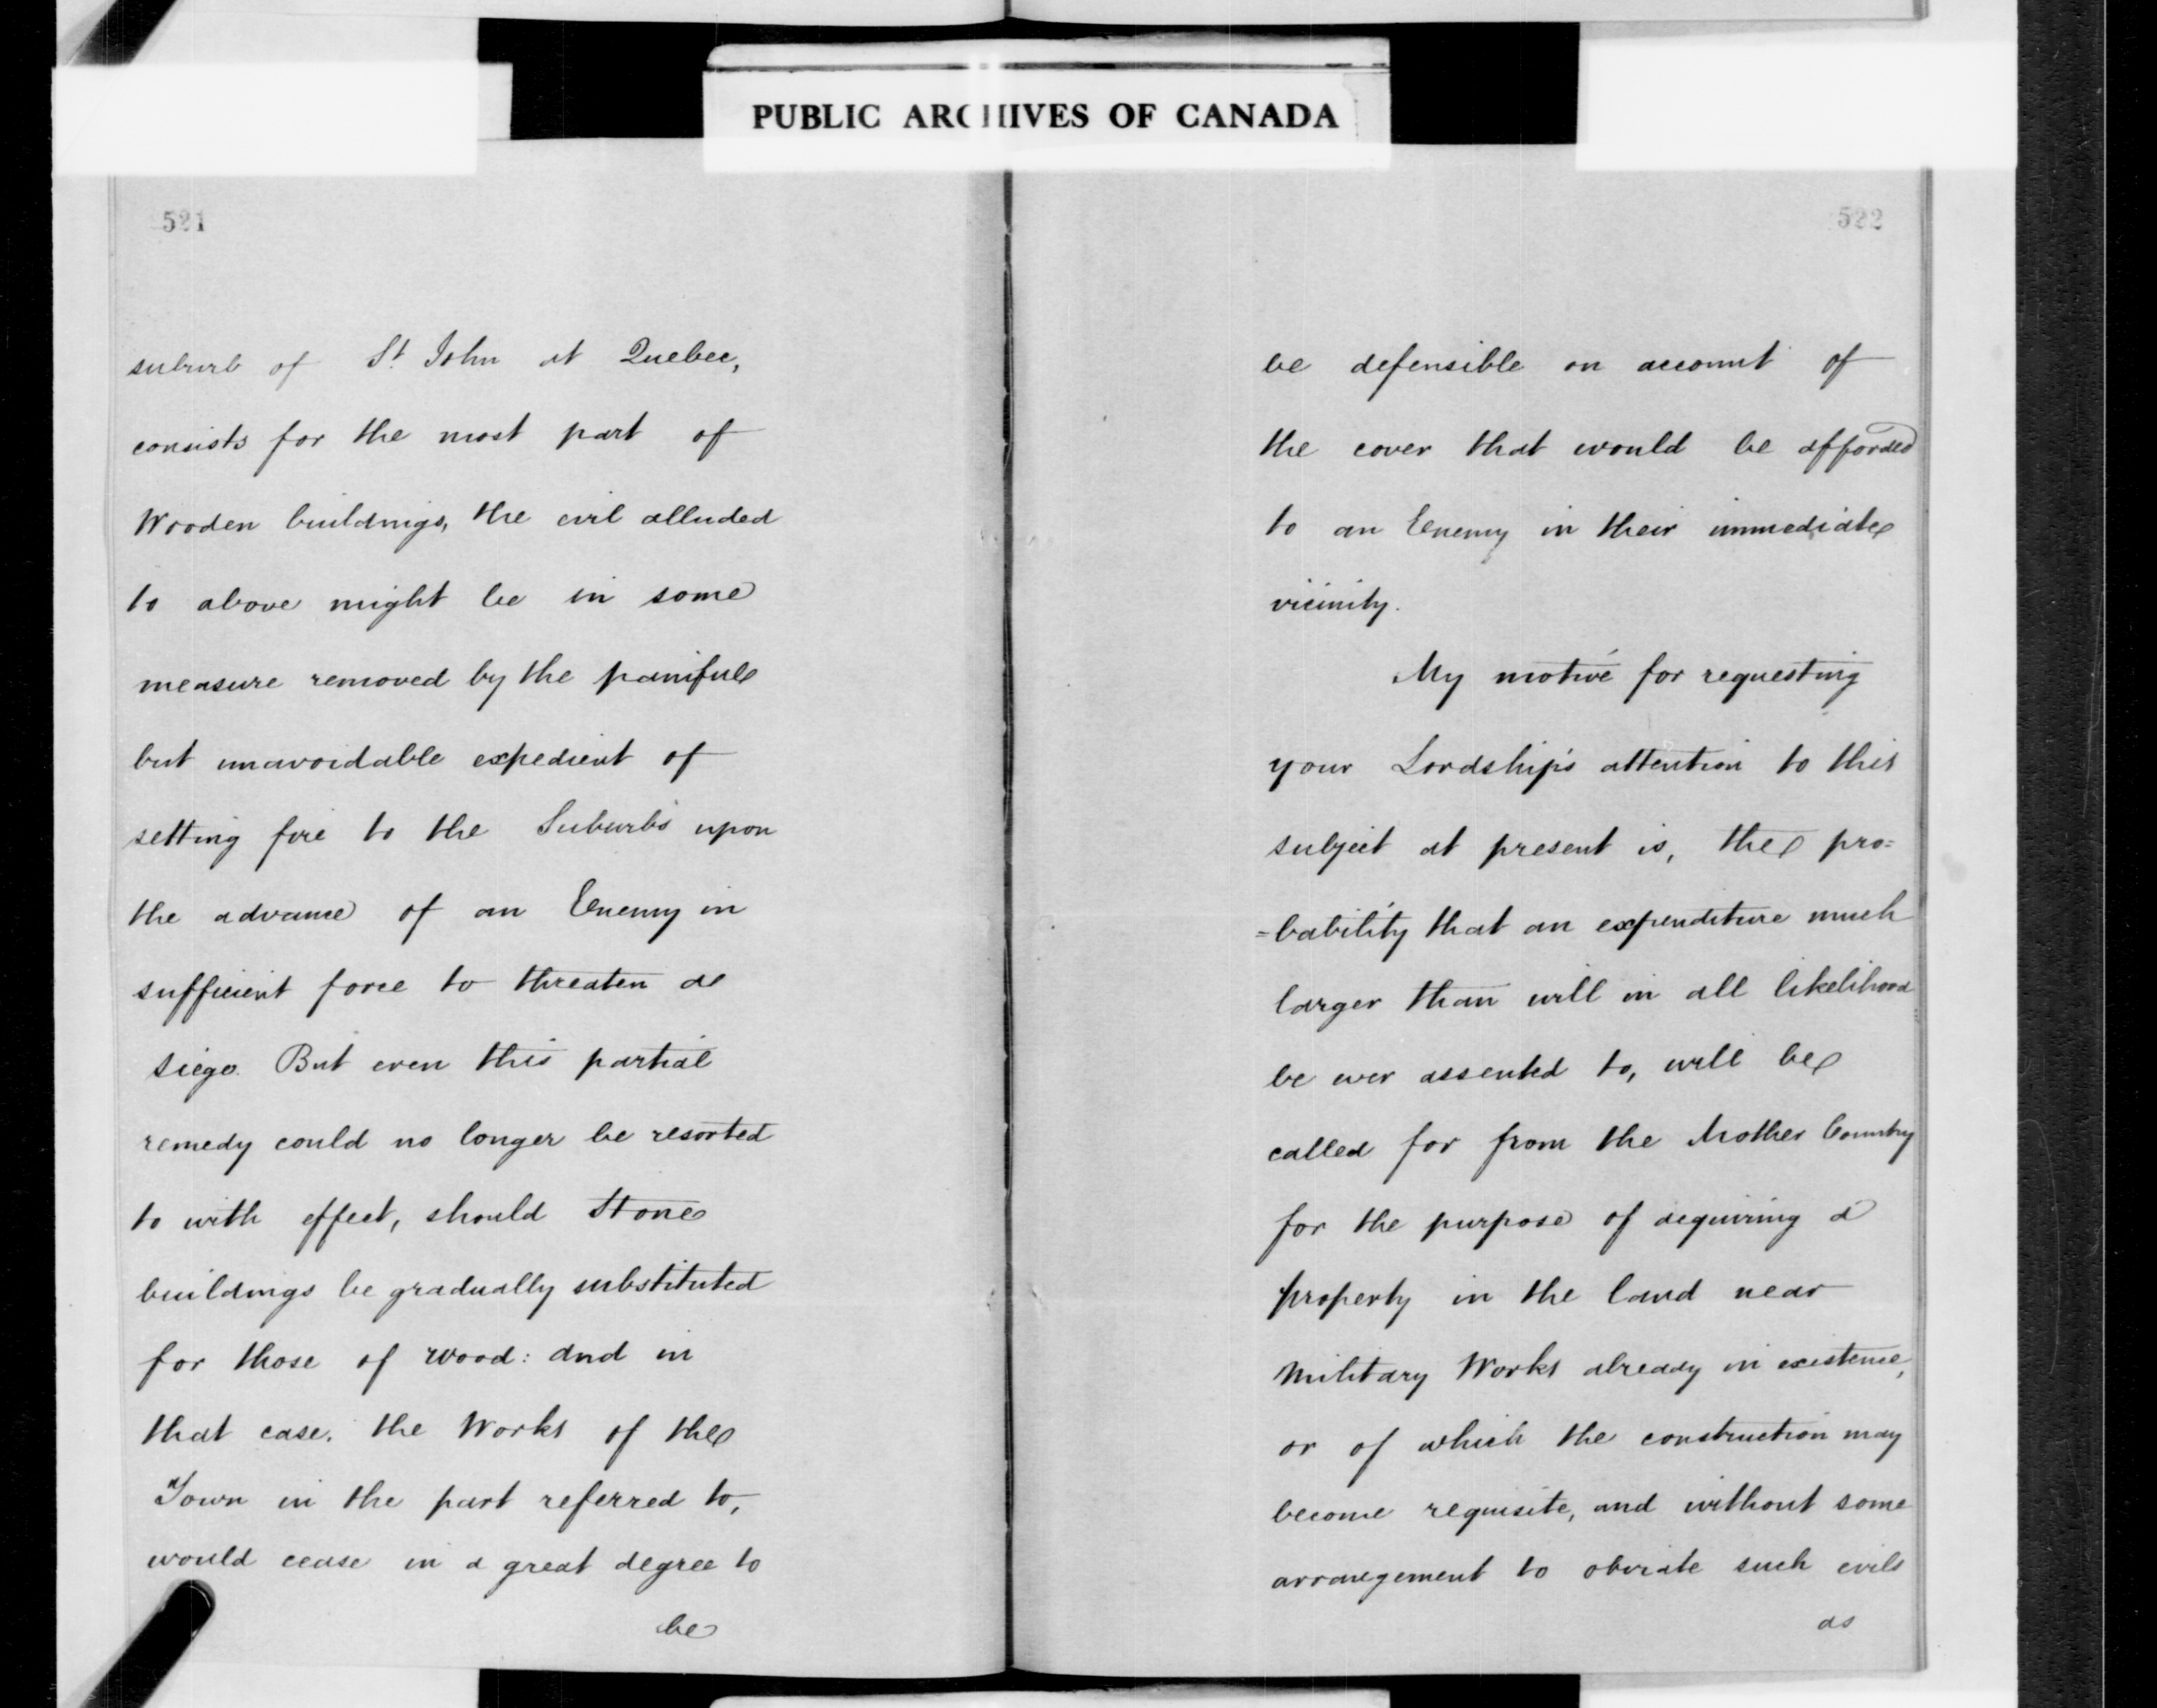 PUBLIC ARCHIVES OF CANADA
521
suburb of St. John at Quebec,
consists for the most part of
Wooden buildings, the evil alluded
to above might be in some
measure removed by the painful
but unavoidable expedient of
setting fire to the Suburbs upon
the advance of an Enemy in
sufficient force to threaten a
siege. But even this partial
remedy could no longer be resorted
to with effect, should Stone
buildings be gradually substituted
for those of wood: and in
that case, the Works of the
Town in the part referred to,
would cease in a great degree to
be
522
be defensible on account of
the cover that would be afforded
to an Enemy in their immediate
vicinity.
My motive for requesting
your Lordship's attention to this
subject at present is, the pro=
=bability that an expenditure much
larger than will in all likelihood
be ever assented to, will be
called for from the Mother Country
for the purpose of acquiring a
property in the land near
Military Works already in existence,
or of which the construction may
become requisite, and without some
arrangement to obviate such evils
as